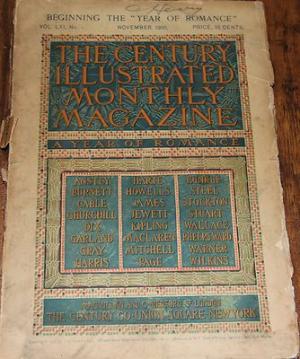 BEGINNING THE "YEAR OF ROMANCE"
VOL. LXI, No. 1 NOVEMBER 1900, PRICE, 35 CENTS.
THE CENTURY
ILLUSTRATED
MONTHLY
MAGAZINE
A YEAR OF ROMANCE
AUSTIN
BURNETT
CABLE
CHURCHILL
DIX
GARLAND
GRAY
HARRIS
HARTE
HOWELLS
JAMES
JEWETT
KIPLING
MACLAREN
MITCHELL
PAGE
RUNKLE
STEEL
STOCKTON
STUART
WALLACE
PHELPS WARD
WARNER
WILKINS
MACMILLAN AND CO. LONDON
THE CENTURY CO. UNION SQUARE NEW YORK